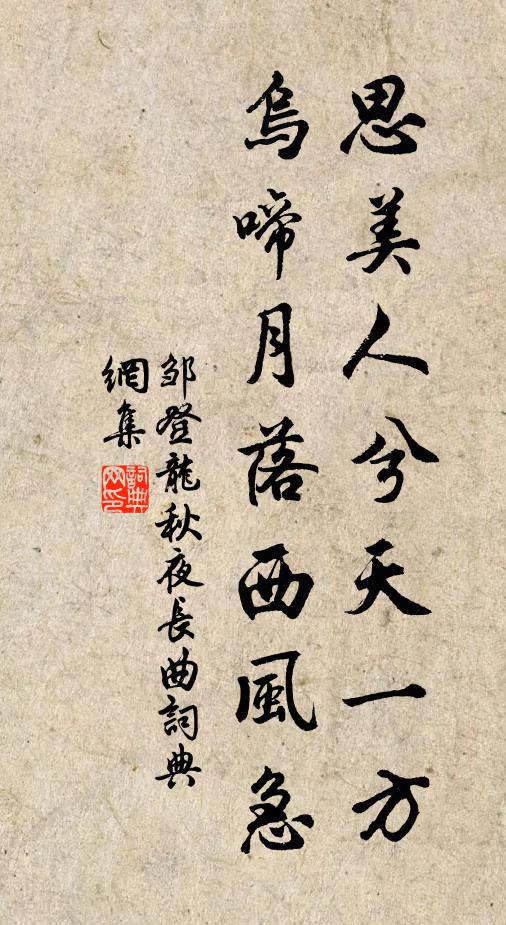 思美人兮天一方
烏啼月落西風急
鄒登龍秋夜長曲詞典
網集
詞典
网印